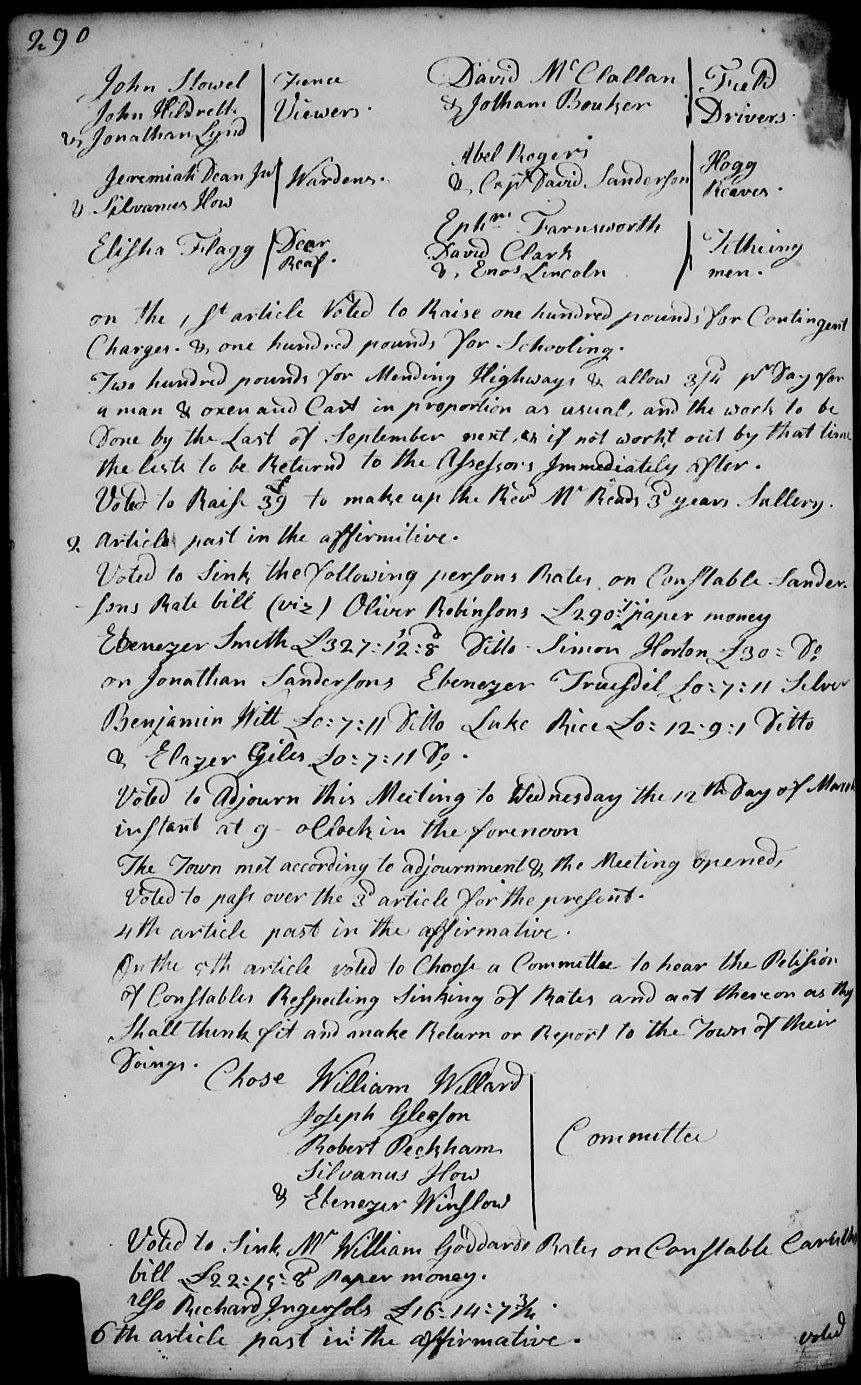 290
John Stowel
John Hildreth
& Jonathan Lynd
Fence
Viewers.
David McClallan
& Jotham Bouker
Field
Drivers.
Jeremiah Dean Jur
& Silvanus How
Wardens.
Abel Rogers
&, Capt David Sanderson
Hogg
Reaves.
Elisha Flagg
Dear
Reaf.
Ephm Farnsworth
David Clark
&, Enos Lincoln
Tithing
men.
on the 1st article Voted to Raise one hundred pounds for Contingent
Charges. & one hundred pounds for Schooling.
Two hundred pounds for Mending Highways & allow 3/4 pr Day for
a man & oxen and Cart in proportion as usual, and the work to be
Done by the Last of September next, & if not workt out by that time
the lists to be Returnd to the Assessors Immediately after.
Voted to Raise 39£ to make up the Revd Mr Reads 3d years Sallery.
2 Article past in the affirmitive.
Voted to Sink the following persons Rates on Constable Sander-
sons Rate bill (viz) Oliver Robinsons £290: paper money
Ebenezer Smith £327:12s:8d Ditto Simon Horton £30= Do
on Jonathan Sandersons Ebenezer Truesdil £0:7:11 Silver
Benjamin Witt £0:7:11 Ditto Luke Rice £0=12:9:1 Ditto
& Elazer Giles £0:7:11 Do.
Voted to Adjourn this Meeting to Wednesday the 12th Day of March
instant at 9 - oClock in the forenoon
The Town met according to adjournment & the Meeting opened,
Voted to pass over the 3d article for the present.
4th article past in the affirmative.
On the 5th article voted to Choose a Committee to hear the Petision
of Constables Respecting Sinking of Rates and act thereon as they
Shall think fit and make Return or Report to the Town of their
Doings.
Chose William Willard
Joseph Gleason
Robert Peckham
Silvanus How
& Ebenezer Winslow
Committee
Voted to Sink Mr William Goddards Rates on Constable
bill £22:15:8d Paper money.
also Richard Ingersols £16:14:7 3/4.
6th article past in the affirmative.
voted